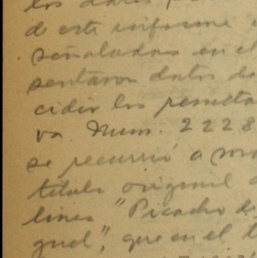 los dares
de este informe
señaladas en el
sentaron datos de
cidir los resulta
va. Num. 2228
se recurrió a
titulo original
linea "Picacho de
guel", que en el t